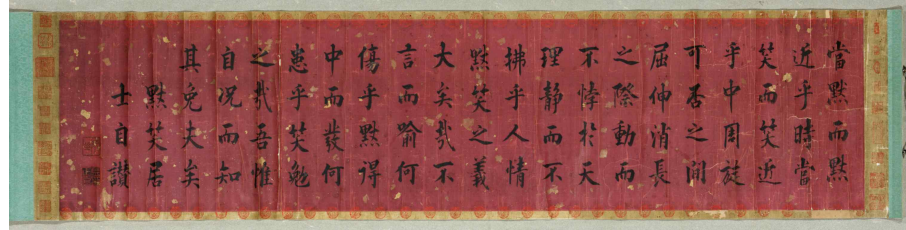 當黙而黙
近乎時當
笑而笑近
乎中周旋
可否之間
屈伸消長
之際動而
不悖於天
理靜而不
拂乎人情
黙笑之義
大矣哉不
言而喻何
傷乎黙得
中而發何
患乎笑勉
之哉吾惟
自况而知
其免夫矣
黙笑居
士自讚